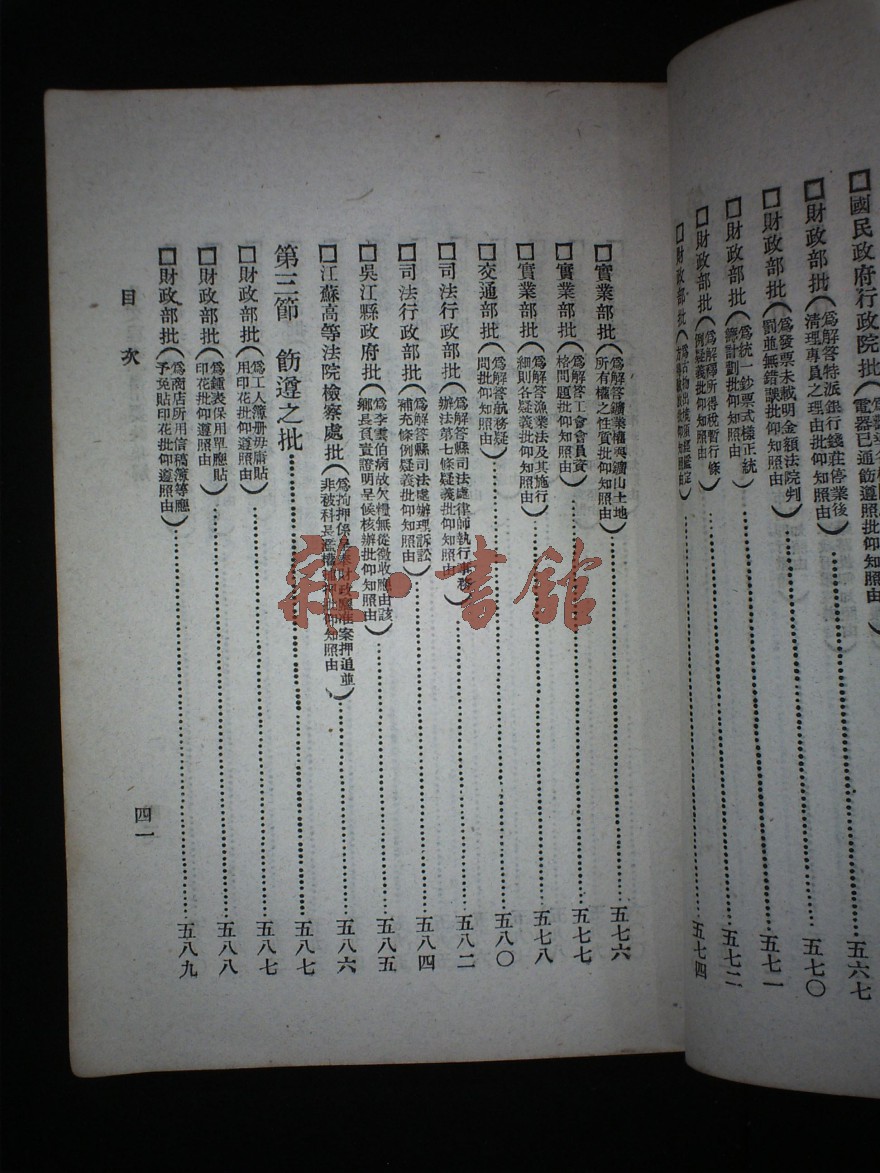 □國民政府行政院批
電器已通飭遵照批仰知照由)……五六七
□財政部批(爲解答特派銀行錢莊停業後清理專員之理由批仰知照由)……五七〇
□財政部批(爲發票未載明金額法院判罰並無錯誤批仰知照由)……五七一
□財政部批(爲統一鈔票式樣正統籌計劃批仰知照由)……五七二
□財政部批(爲解釋所得稅暫行條例疑義批仰知照由)……五七四
□財政部批
□實業部批(爲解答鑛業權與鑛山土地所有權之性質批仰知照由)……五七六
□實業部批(爲解答工會會員資格問題批仰知照由)……五七七
□實業部批(爲解答漁業法及其施行細則各疑義批仰知照由)……五七八
□交通部批(爲解答航務疑問批仰知照由)……五八〇
□司法行政部批(爲解答縣司法處律師執行事務辦法第七條疑義批仰知照由)……五八二
□司法行政部批(爲解答縣司法處辦理訴訟補充條例疑義批仰知照由)……五八四
□吳江縣政府批(爲李雲伯病故欠糧無從徵收應由該鄉長負責證明呈候核辦批仰知照由)……五八五
□江蘇高等法院檢察處批(爲拘押係是奉財政廳准案押追並非被科長濫權拘押批仰知照由)……五八六
第三節 飭遵之批……五八七
□財政部批(爲工人簿册毋庸貼用印花批仰遵照由)……五八七
□財政部批(爲鐘表保用單應貼印花批仰遵照由)……五八八
□財政部批(爲商店所用信稿簿等應予免貼印花批仰遵照由)……五八九
目 次
四一
雜·書館